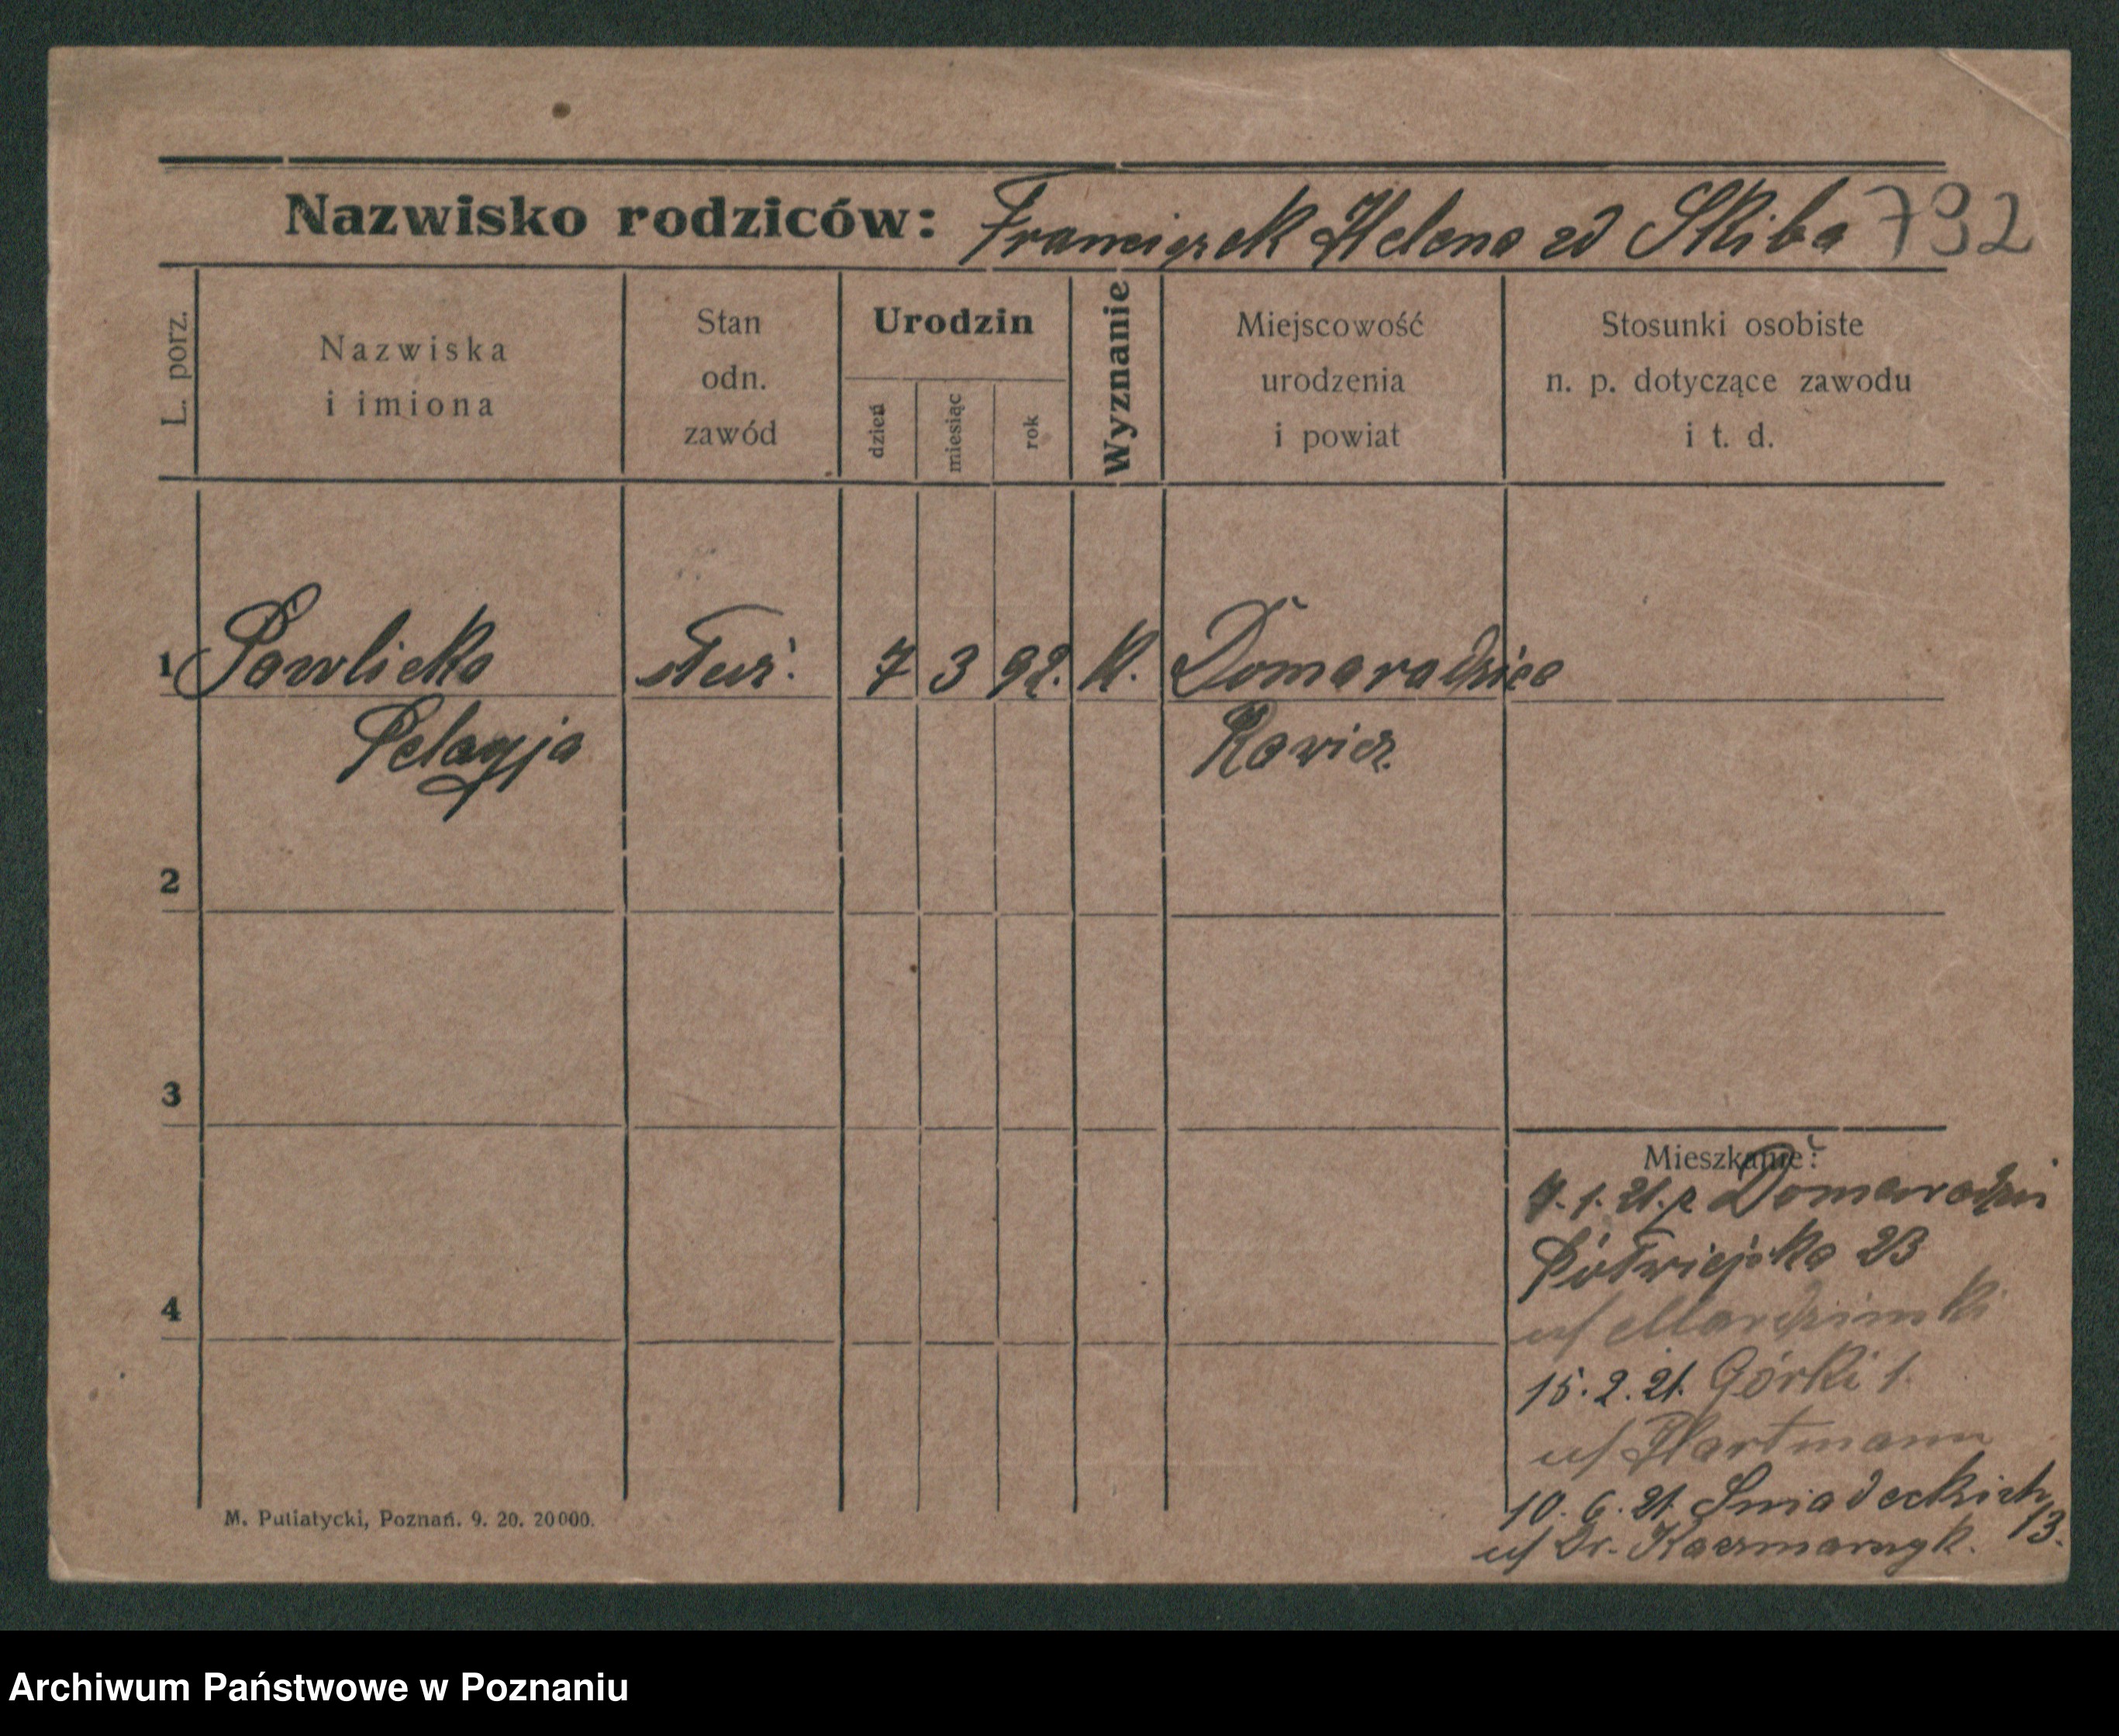 Nazwisko rodziców: Franciszek Helena zd Skiba 792
L. porz.
Nazwiska
i imiona
Stan
odn.
zawód
Urodzin
dzień
miesiąc
rok
Wyznanie
Miejscowość
urodzenia
i powiat
Stosunki osobiste
n. p. dotyczące zawodu
i t. d.
1 Pawlicka służ. 7 3 92. K. Domaradzice
Pelagja Rawicz
2
3
4
Mieszkanie:
7.1.21. z Domaradzic
Półwiejska 23
u/
15.2.21. Górki 1.
u/ Hartmann
10.6.21. Śniadeckich 13.
u/ Dr. Kaczmaryk.
M. Putiatycki, Poznań. 9. 20. 20000.
Archiwum Państwowe w Poznaniu